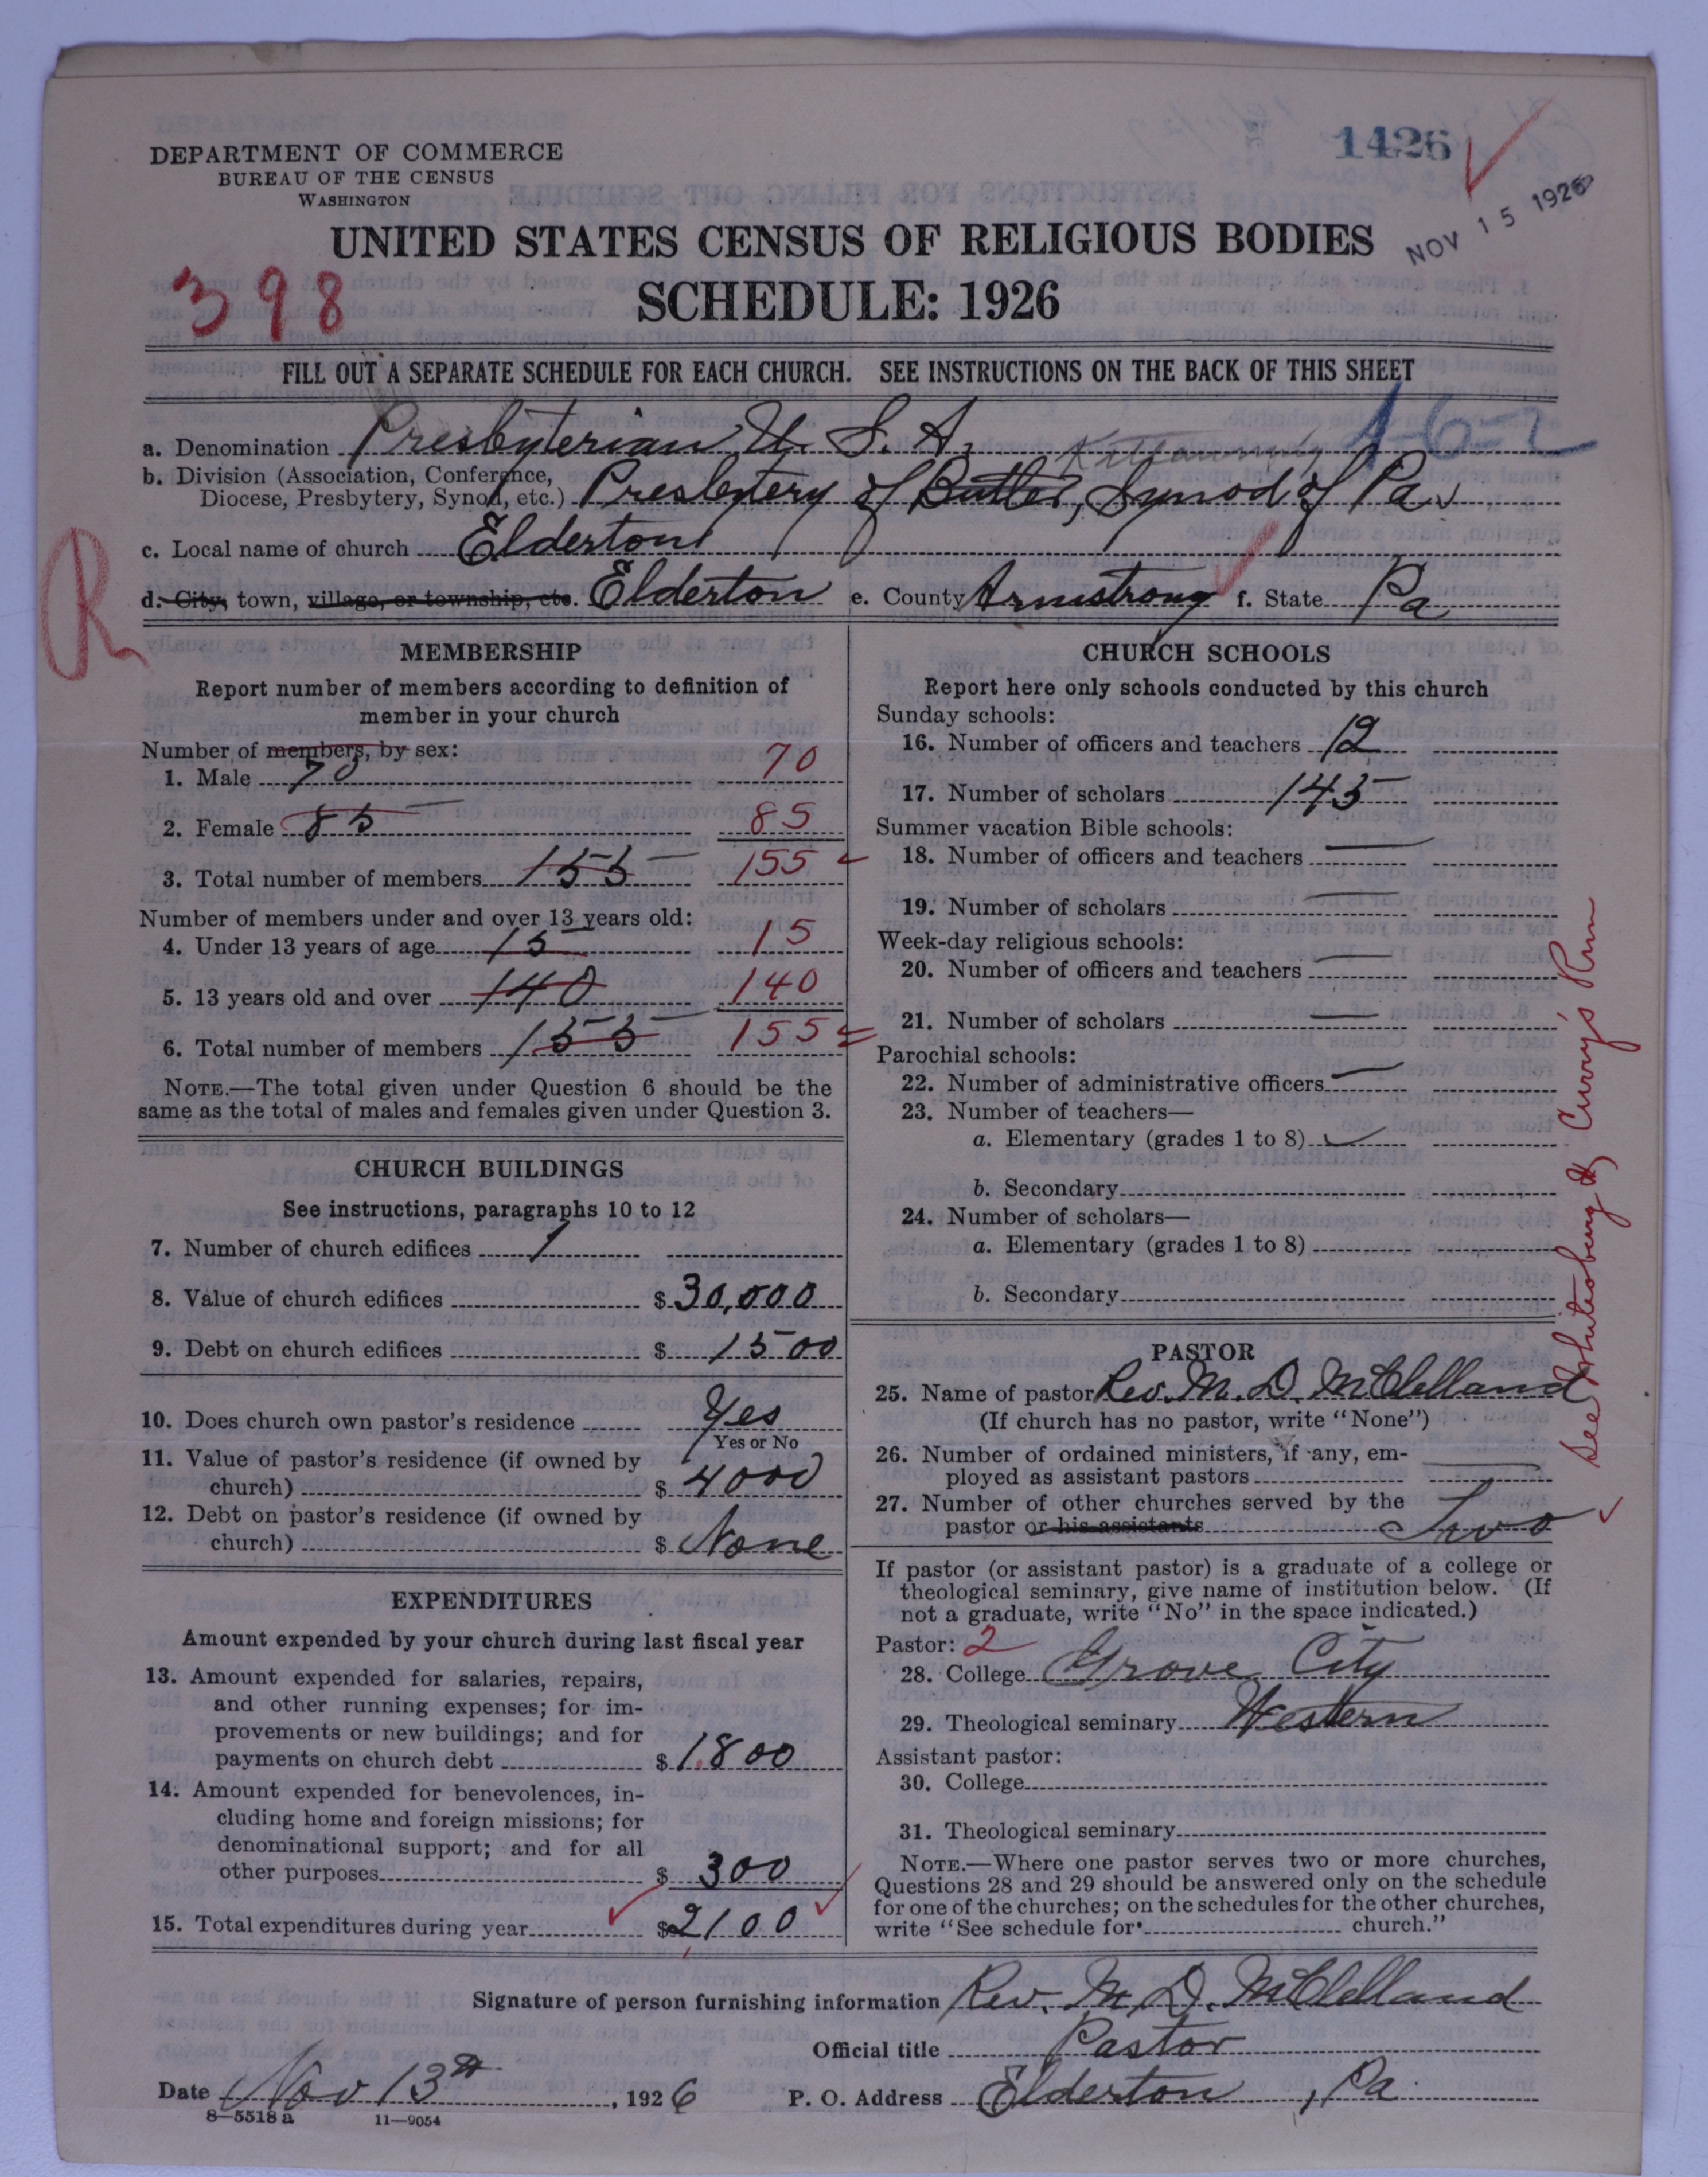 1426
DEPARTMENT OF COMMERCE
BUREAU OF THE CENSUS
WASHINGTON
NOV 15 1926
UNITED STATES CENSUS OF RELIGIOUS BODIES
398
SCHEDULE: 1926
FILL OUT A SEPARATE SCHEDULE FOR EACH CHURCH. SEE INSTRUCTIONS ON THE BACK OF THIS SHEET
a. Denomination Presbyterian U. S. A. Kittanning 1-6-2
b. Division (Association, Conference,
Diocese, Presbytery, Synod, etc.) Presbytery of Butler, Synod of Pa
c. Local name of church Elderton
R
d. City, town, village, or township, etc. Elderton e. County Armstrong f. State Pa
MEMBERSHIP
Report number of members according to definition of
member in your church
Number of members, by sex:
1. Male 70 70
2. Female 85 85
3. Total number of members 155 155
Number of members under and over 13 years old:
4. Under 13 years of age 15 15
5. 13 years old and over 140 140
6. Total number of members 155 155
NOTE.—The total given under Question 6 should be the
same as the total of males and females given under Question 3.
CHURCH BUILDINGS
See instructions, paragraphs 10 to 12
7. Number of church edifices 1
8. Value of church edifices $ 30,000
9. Debt on church edifices $ 1500
10. Does church own pastor's residence Yes
Yes or No
11. Value of pastor's residence (if owned by
church) $ 4000
12. Debt on pastor's residence (if owned by
church) $ None
EXPENDITURES
Amount expended by your church during last fiscal year
13. Amount expended for salaries, repairs,
and other running expenses; for im-
provements or new buildings; and for
payments on church debt $ 1800
14. Amount expended for benevolences, in-
cluding home and foreign missions; for
denominational support; and for all
other purposes $ 300
15. Total expenditures during year $ 2100
CHURCH SCHOOLS
Report here only schools conducted by this church
Sunday schools:
16. Number of officers and teachers 12
17. Number of scholars 145
Summer vacation Bible schools:
18. Number of officers and teachers —
19. Number of scholars —
Week-day religious schools:
20. Number of officers and teachers —
21. Number of scholars —
Parochial schools:
22. Number of administrative officers —
23. Number of teachers—
a. Elementary (grades 1 to 8)
b. Secondary
24. Number of scholars—
a. Elementary (grades 1 to 8)
b. Secondary
See Whitesburg & Curry's Run
PASTOR
25. Name of pastor Rev. M. D. McClelland
(If church has no pastor, write "None")
26. Number of ordained ministers, if any, em-
ployed as assistant pastors —
27. Number of other churches served by the
pastor or his assistants Two
If pastor (or assistant pastor) is a graduate of a college or
theological seminary, give name of institution below. (If
not a graduate, write "No" in the space indicated.)
Pastor: 2
28. College Grove City
29. Theological seminary Western
Assistant pastor:
30. College
31. Theological seminary
NOTE.—Where one pastor serves two or more churches,
Questions 28 and 29 should be answered only on the schedule
for one of the churches; on the schedules for the other churches,
write "See schedule for church."
Signature of person furnishing information Rev. M. D. McClelland
Official title Pastor
Date Nov 13th, 1926 P. O. Address Elderton, Pa
8—5518a 11—9054